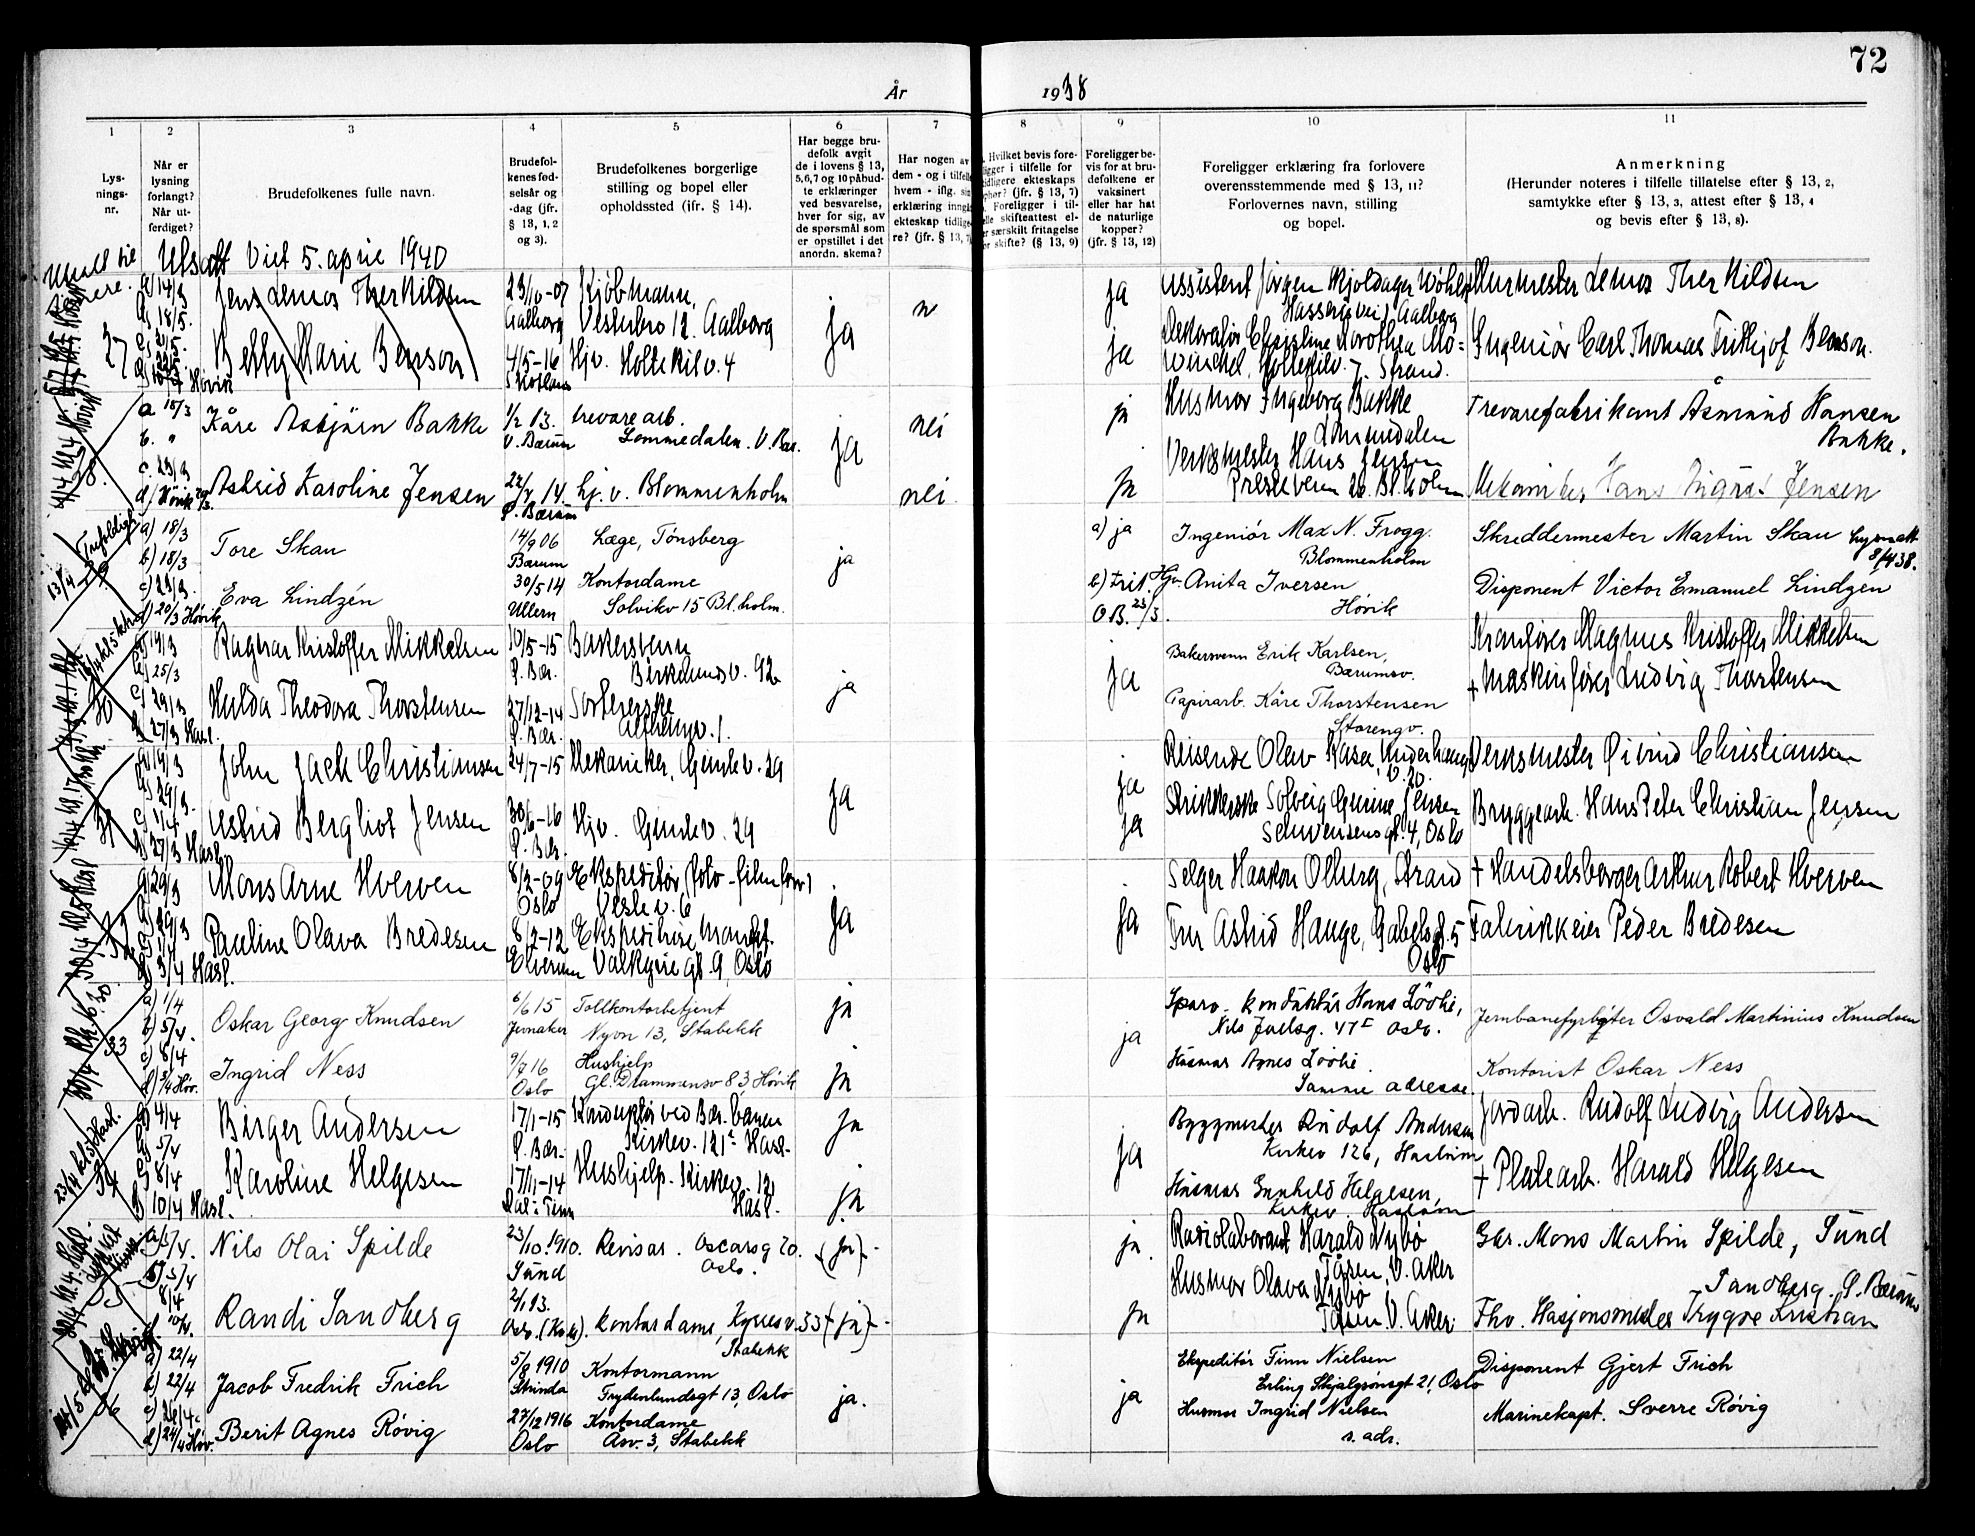 72
År
1938
1
2
3
4
5
6
7
8
9
10
11
Lys-
nings-
nr.
Når er
lysning
forlangt?
Når ut-
ferdiget?
Brudefolkenes fulle navn.
Brudefol-
kenes fød-
selsår og
-dag (jfr.
§ 13, 1, 2
og 3).
Brudefolkenes borgerlige
stilling og bopel eller
opholdssted (jfr. § 14).
Har begge bru-
defolk avgit
de i lovens § 13,
5,6,7 og 10 påbud-
te erklæringer
ved besvarelse,
hver for sig, av
de spørsmål som
er opstillet i det
anordn. skema?
Har nogen av
dem - og i tilfelle
hvem - iflg.
erklæring inngå
ekteskap tidlige-
re? (jfr. § 13,
Hvilket bevis fore-
ligger i tilfelle for
tidligere ekteskaps
ophør? (jfr. § 13, 7)
Foreligger i til-
felle skifteattest el-
ler særskilt fritagelse
for skifte? (§ 13, 9)
Foreligger be-
vis for at bru-
defolkene er
vaksinert
eller har hat
de naturlige
kopper?
(jfr. § 13, 12)
Foreligger erklæring fra forlovere
overensstemmende med § 13, 11?
Forlovernes navn, stilling
og bopel.
Anmerkning
(Herunder noteres i tilfelle tillatelse efter § 13, 2,
samtykke efter § 13, 3, attest efter § 13, 4
og bevis efter § 13, 8).
Utsatt Viet 5. april 1940
27
a) 14/3
b) 18/5.
Jens Lemos Therkildsen
23/10-07
Aalborg
Kjøbmann,
Vesterbro 12. Aalborg
ja
n
ja
Assistent Jörgen
Hasserisvei, Aalborg
Murmester Lemos Therkildsen
Betty Marie Benson
4/5-16
Skotland
Hjv. Holtekilv. 4
ja
Holtekilv. 7. Strand.
Ingeniør Carl Thomas Frithjof Benson.
28.
a 18/3
b. "
c. 29/3
Kåre Asbjörn Bakke
1/2 13.
V. Bærum
trevarearb.
Lommedalen. V. Bær.
ja
nei
ja
Husmor Ingeborg Bakke
Lommedalen
Trevarefabrikant Åsmund Hansen
Bakke.
Astrid Karoline Jensen
14.
Ø. Bærum
hj. v. Blommenholm
nei
ja
Verksmester Hans Jensen
Presteveien 26. Bl.holm
Mekaniker Hans Ingvas Jensen
29
a) 18/3
b) 18/3
c) 29/3
d) 20/3 Høvik
Tore Skau
14/9 06
Bærum
Læge, Tönsberg
ja
a) ja
Ingeniör Max N. Frogg.
Blommenholm
Skreddermester Martin Skau
8/4 38.
Eva Lindzén
30/5 14
Ullern
Kontordame
Solvikv 15 Bl.holm.
b) trit.
O B. 23/3.
Hjv. Anita Iversen
Høvik
Disponent Victor Emanuel Lindzen
30
a) 19/3
b) 25/3
c) 29/3
d) 27/3 Hasl.
Ragnar Kristoffer Mikkelsen
10/5-15
Ø. Bær.
Bakersvenn
Birkelundsv. 92
ja
ja
Bakersvenn Erik Karlsen,
Bærumsv.
Kranfører Magnus Kristoffer Mikkelsen
Hulda Theodora Thorstensen
27/12-14
Ø. Bær.
Sorterерske
v. 1.
Papirarb. Kåre Thorstensen
Storengv.
+ Maskinfører Ludvig Thorstensen
31
a) 19/3
b) 29/3.
c) 1/4
d) 27/3 Hasl.
John Jack Christiansen
24/7-15
Mekaniker, Gimlev. 29
ja
ja
Reisende Olav Kasa, Underhaugs
v. 20.
Verksmester Øivind Christiansen
Astrid Bergliot Jensen
30/6-16
Ø. Bær.
Hjv. Gimlev. 29
ja
Strikkerske Solveig Gurine Jensen
Schwensensgt. 4, Oslo
Bryggearb. Hans Peter Christian Jensen
32
a) 29/3
b) 29/3
c) 1/4
d) 3/4 Hasl.
Mons Arne Hverven
8/2-09
Oslo
Ekspeditør,
Veslev. 6
ja
ja
Selger Haakon Olberg, Strand
+ Handelsborger Arthur Robert Hverven
Pauline Olava Bredesen
8/2-12
Elverum
Ekspeditrise
Valkyriegt. 9, Oslo
Fru Astrid Hauge, Gabelsgt. 5
Oslo
Fabrikkeier Peder Bredesen
33
a) 1/4
b) 5/4.
c) 8/4
d) 3/4 Höv.
Oskar Georg Knudsen
6/6 15
Jevnaker
Tollkontorbetjent
Nyvn 13, Stabekk
ja
ja
Sporv. konduktör Hans Löôhi,
Nils Juelsg. 47 E Oslo.
Jernbanefyrbøter Osvald Martinius Knudsen
Ingrid Ness
9/7 16
Oslo
Hushjelp
Gl. Drammensv 83 Høvik
ja
Husmor Agnes Löôhi
Samme adresse.
Kontorist Oskar Ness
34
a) 4/4
b) 5/4
c) 8/4
d) 10/4 Hasl.
Birger Andersen
17/1-15
Ø. Bær.
Konduktör ved Bær. banen
Kirkev. 121 Hasl.
ja
ja
Byggmester Rudolf Andersen
Kirkev 126, Haslum
Jordarb. Rudolf Ludvig Andersen
Karoline Helgesen
17/11-14
Hushjelp. Kirkev. 121
Hasl.
ja
Husmor Gunhild Helgesen,
Kirkev. Haslum
+ Platearb. Harald Helgesen
35
a) 5/4.
b) 5/4
8/4
Nils Olai Spilde
23/10.1910.
Sund
Revisor. Oscarsg 20.
Oslo.
(ja)
ja.
Radiolaborant Harald Nybö
Tåsen, V. Aker
Gbr. Mons Martin Spilde, Sund
Randi Sandberg
2/1 13.
Kontordame, Kynesv. 33
Stabekk
(ja)
ja
Husmor Olava Nybö
Tåsen V. Aker.
Sandberg. Ø. Bærum
Fhv. Stasjonsmester Trygve Kristian
36
a) 22/4
b) 22/4
c) 26/4
d) 24/4 Höv.
Jacob Fredrik Frich
5/8 1910
Strinda
Kontormann
Frydenlundsgt 13, Oslo
ja.
ja
Ekspeditör Finn Nielsen
Erling Skjalgsønsgt 21, Oslo
Disponent Gjert Frich
Berit Agnes Røvig
27/12 1916
Oslo
Kontordame
Åsv. 3, Stabekk
Husmor Ingrid Nielsen
s. adr.
Marinekapt. Sverre Røvig